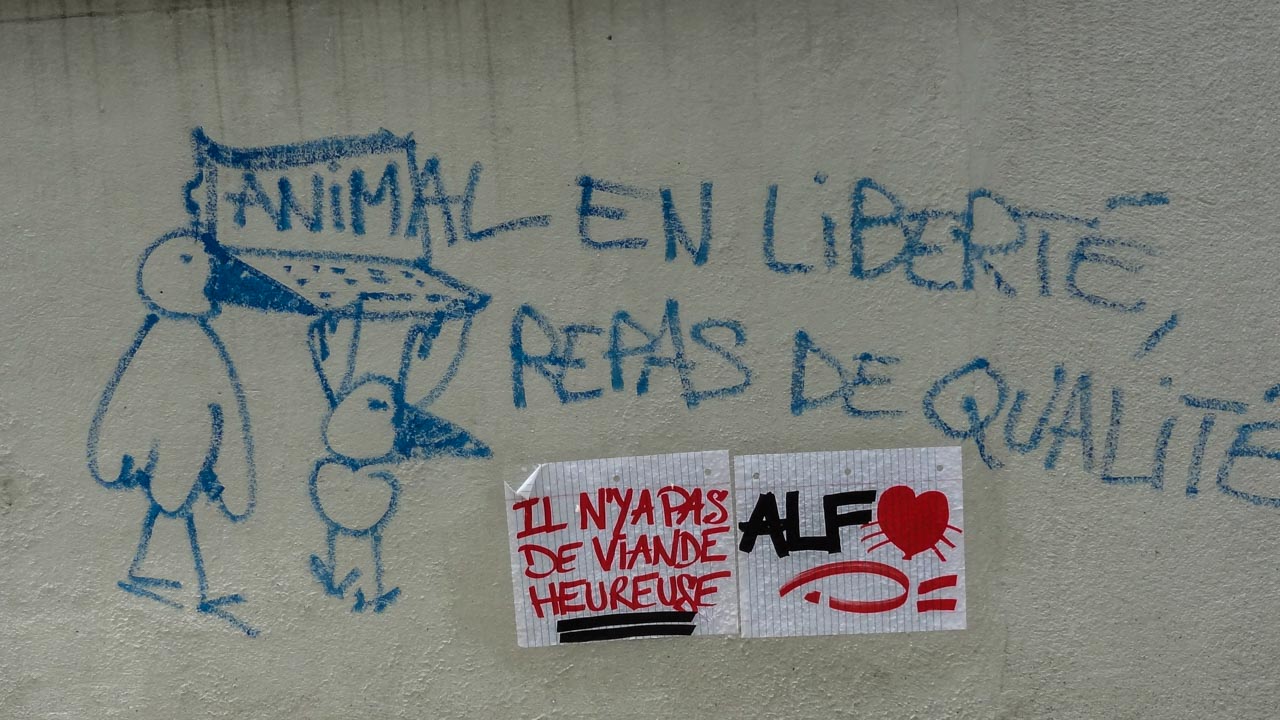 ANiMAL EN LiBERTÉ,
REPAS DE QUALiTÉ
IL N'Y A PAS
DE ViANDE
HEUREUSE
ALF